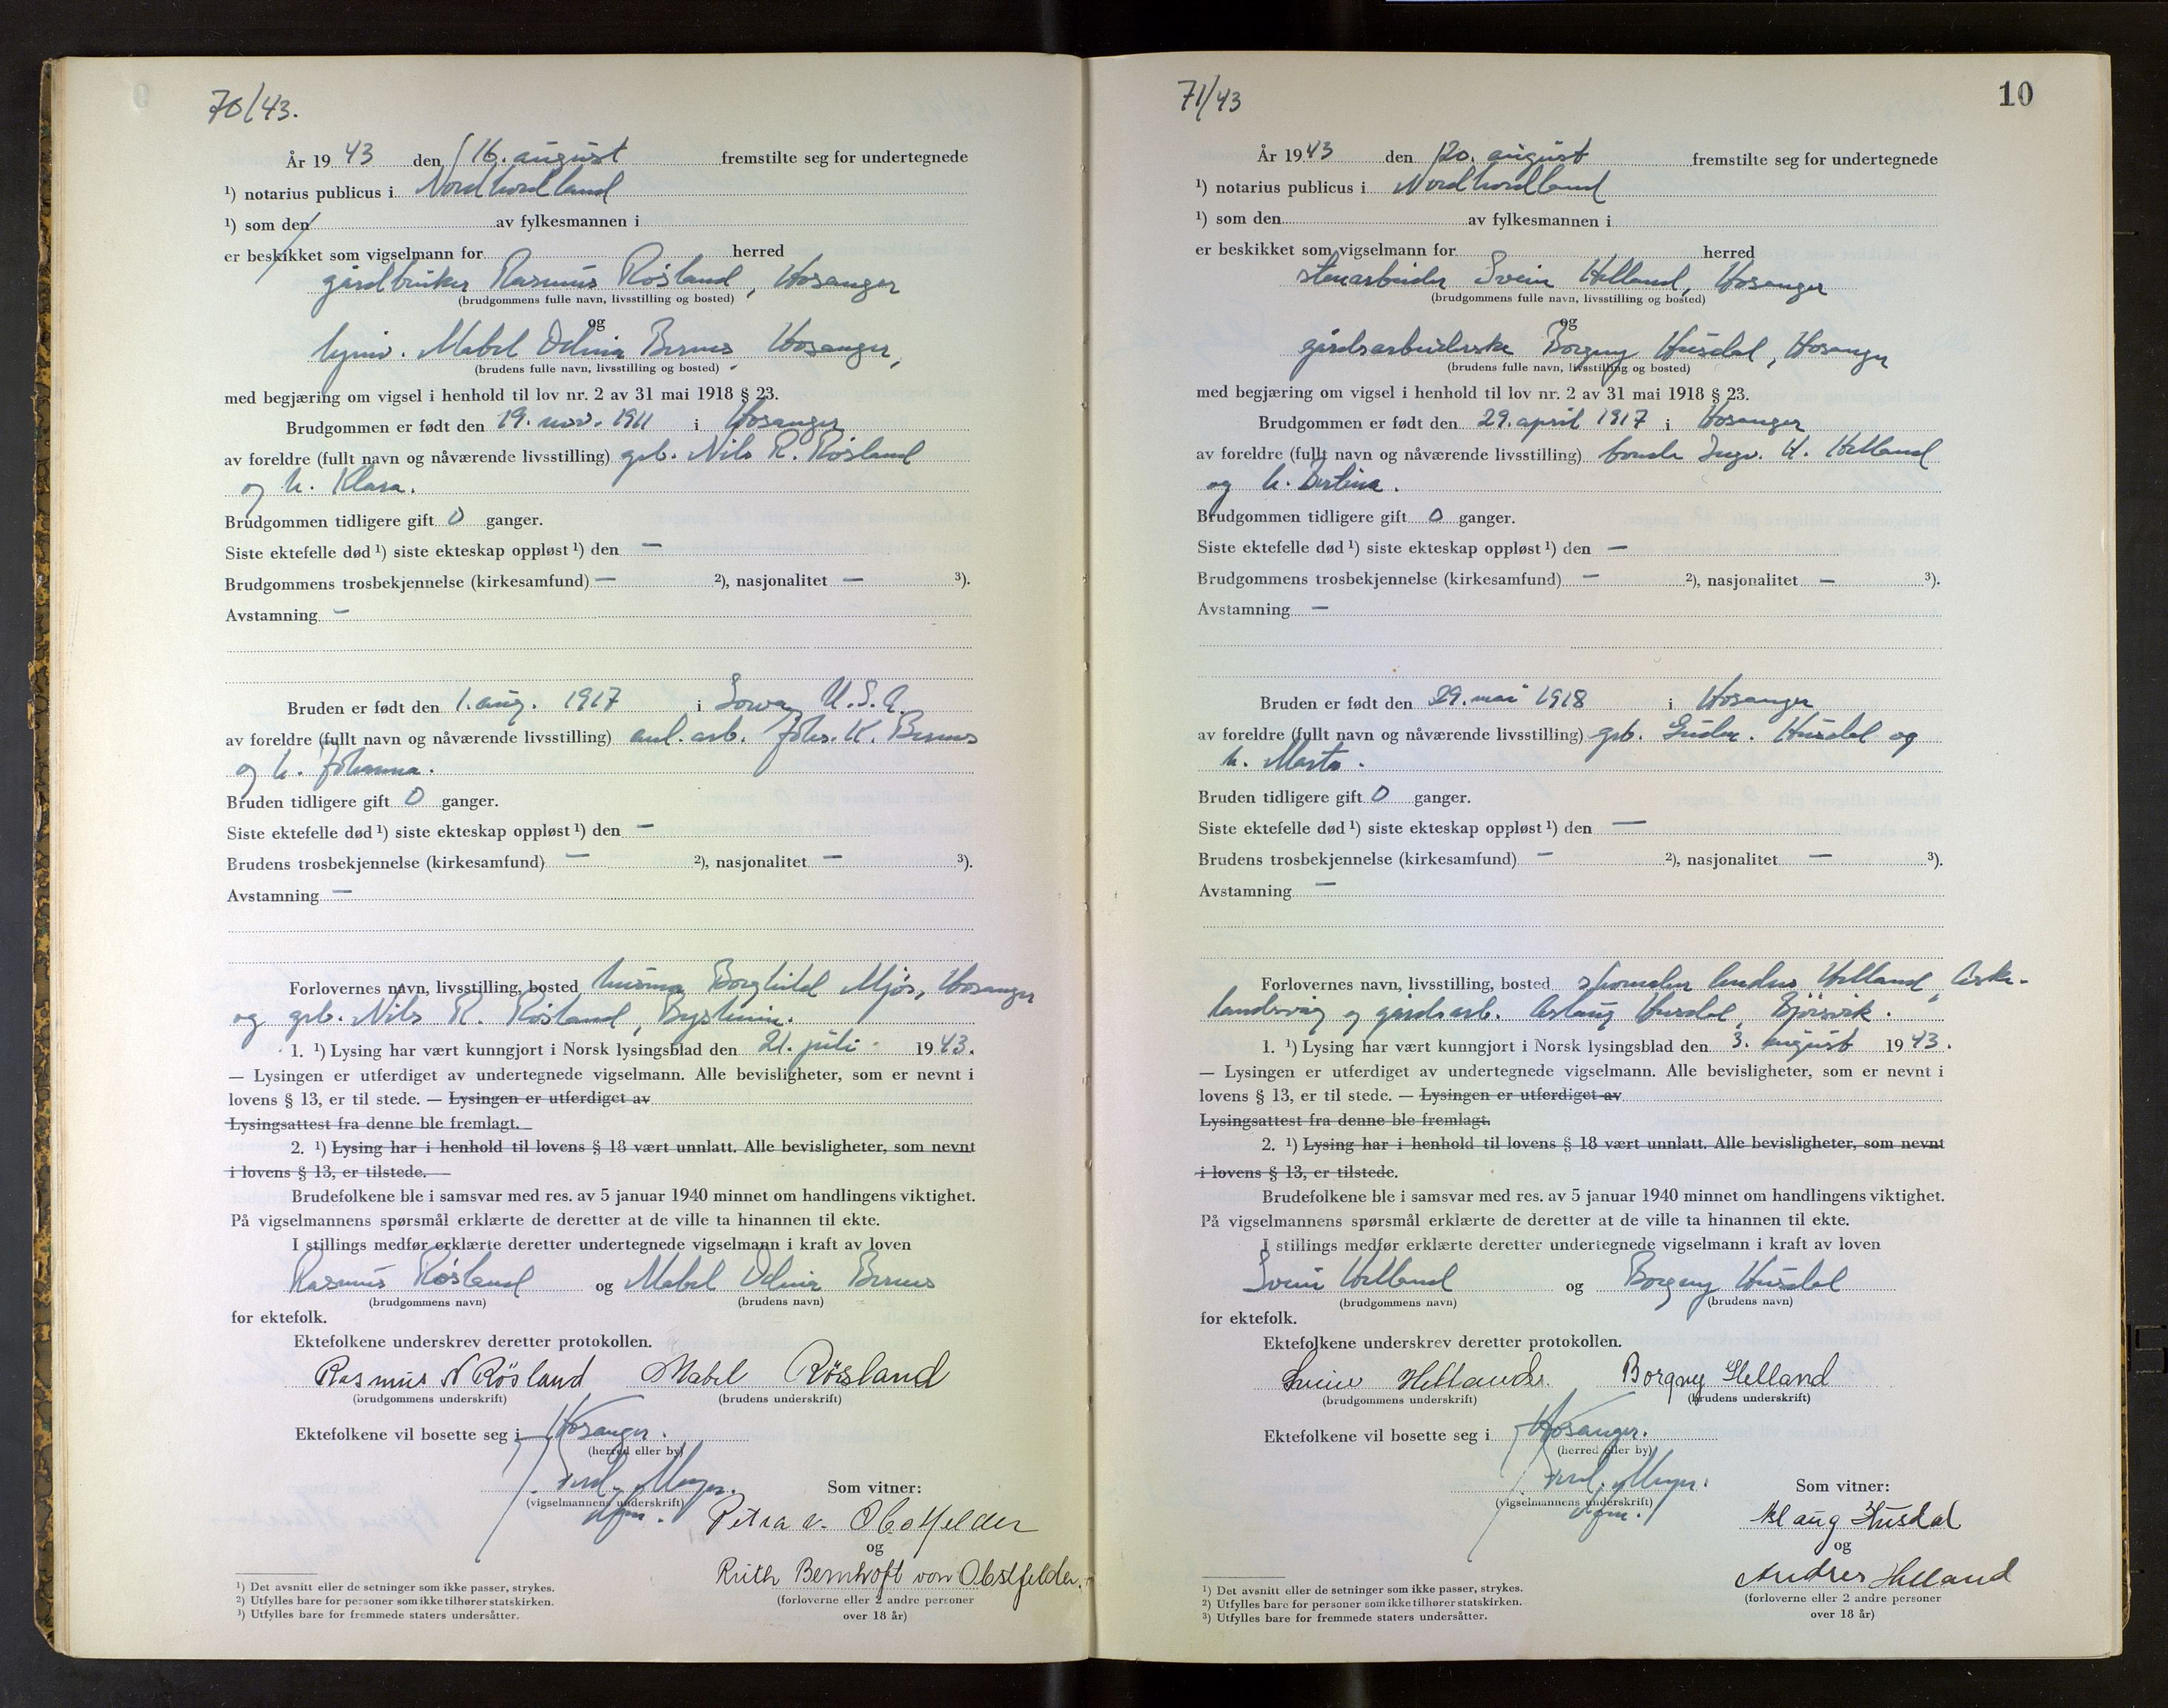 70/43.
År 1943 den 16. august fremstilte seg for undertegnede
¹) notarius publicus i Nordhordland
¹) som den av fylkesmannen i
er beskikket som vigselmann for herred
gårdbruker Rasmus Rösland, Hosanger
(brudgommens fulle navn, livsstilling og bosted)
og
Mabel Odina Hosanger,
(brudens fulle navn, livsstilling og bosted)
med begjæring om vigsel i henhold til lov nr. 2 av 31 mai 1918 § 23.
Brudgommen er født den 19. nov. 1911 i Hosanger
av foreldre (fullt navn og nåværende livsstilling) grb. Nils R. Rösland
og h. Klara.
Brudgommen tidligere gift 0 ganger.
Siste ektefelle død ¹) siste ekteskap oppløst ¹) den —
Brudgommens trosbekjennelse (kirkesamfund) — ²), nasjonalitet — ³).
Avstamning —
Bruden er født den 1. aug. 1917 i Iowa, U.S.A.
av foreldre (fullt navn og nåværende livsstilling) anl. arb. Johs. K.
og h. Johanna.
Bruden tidligere gift 0 ganger.
Siste ektefelle død ¹) siste ekteskap oppløst ¹) den —
Brudens trosbekjennelse (kirkesamfund) — ²), nasjonalitet — ³).
Avstamning —
Forlovernes navn, livsstilling, bosted Borghild Mjös, Hosanger
og grb. Nils R. Rösland, Bysheim.
1. ¹) Lysing har vært kunngjort i Norsk lysingsblad den 21. juli 1943.
— Lysingen er utferdiget av undertegnede vigselmann. Alle bevisligheter, som er nevnt i
lovens § 13, er til stede. — Lysingen er utferdiget av
Lysingsattest fra denne ble fremlagt.
2. ¹) Lysing har i henhold til lovens § 18 vært unnlatt. Alle bevisligheter, som nevnt
i lovens § 13, er tilstede.
Brudefolkene ble i samsvar med res. av 5 januar 1940 minnet om handlingens viktighet.
På vigselmannens spørsmål erklærte de deretter at de ville ta hinannen til ekte.
I stillings medfør erklærte deretter undertegnede vigselmann i kraft av loven
Rasmus Rösland og Mabel Odina
(brudgommens navn) (brudens navn)
for ektefolk.
Ektefolkene underskrev deretter protokollen.
Rasmus N Rösland Mabel Rösland
(brudgommens underskrift) (brudens underskrift)
Ektefolkene vil bosette seg i Hosanger.
(herred eller by)
Meyer.
(vigselmannens underskrift)
Som vitner:
Petra v. Obstfelder
og
Ruth Bernhoft von Obstfelder.
(forloverne eller 2 andre personer
over 18 år)
¹) Det avsnitt eller de setninger som ikke passer, strykes.
²) Utfylles bare for personer som ikke tilhører statskirken.
³) Utfylles bare for fremmede staters undersåtter.
71/43
10
År 1943 den 20. august fremstilte seg for undertegnede
¹) notarius publicus i Nordhordland
¹) som den av fylkesmannen i
er beskikket som vigselmann for herred
stenarbeider Svein Helland, Hosanger
(brudgommens fulle navn, livsstilling og bosted)
og
gårdsarbeiderske Borgny Husdal, Hosanger
(brudens fulle navn, livsstilling og bosted)
med begjæring om vigsel i henhold til lov nr. 2 av 31 mai 1918 § 23.
Brudgommen er født den 29. april 1917 i Hosanger
av foreldre (fullt navn og nåværende livsstilling) bonde Ingv. H. Helland
og h. Bertina.
Brudgommen tidligere gift 0 ganger.
Siste ektefelle død ¹) siste ekteskap oppløst ¹) den —
Brudgommens trosbekjennelse (kirkesamfund) — ²), nasjonalitet — ³).
Avstamning —
Bruden er født den 29. mai 1918 i Hosanger
av foreldre (fullt navn og nåværende livsstilling) grb. Gudm. Husdal og
h. Marta.
Bruden tidligere gift 0 ganger.
Siste ektefelle død ¹) siste ekteskap oppløst ¹) den —
Brudens trosbekjennelse (kirkesamfund) — ²), nasjonalitet — ³).
Avstamning —
Forlovernes navn, livsstilling, bosted Andres Helland,
og gårdsarb. Aslaug Husdal, Bjørsvik.
1. ¹) Lysing har vært kunngjort i Norsk lysingsblad den 3. august 1943.
— Lysingen er utferdiget av undertegnede vigselmann. Alle bevisligheter, som er nevnt i
lovens § 13, er til stede. — Lysingen er utferdiget av
Lysingsattest fra denne ble fremlagt.
2. ¹) Lysing har i henhold til lovens § 18 vært unnlatt. Alle bevisligheter, som nevnt
i lovens § 13, er tilstede.
Brudefolkene ble i samsvar med res. av 5 januar 1940 minnet om handlingens viktighet.
På vigselmannens spørsmål erklærte de deretter at de ville ta hinannen til ekte.
I stillings medfør erklærte deretter undertegnede vigselmann i kraft av loven
Svein Helland og Borgny Husdal
(brudgommens navn) (brudens navn)
for ektefolk.
Ektefolkene underskrev deretter protokollen.
Svein Helland. Borgny Helland
(brudgommens underskrift) (brudens underskrift)
Ektefolkene vil bosette seg i Hosanger.
(herred eller by)
Meyer.
(vigselmannens underskrift)
Som vitner:
Aslaug Husdal
og
Andres Helland
(forloverne eller 2 andre personer
over 18 år)
¹) Det avsnitt eller de setninger som ikke passer, strykes.
²) Utfylles bare for personer som ikke tilhører statskirken.
³) Utfylles bare for fremmede staters undersåtter.